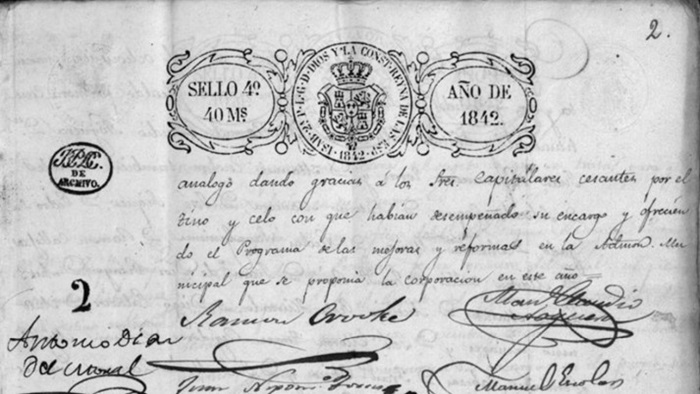 2.
SELLO 4º
40 Ms
ISAB. 2ª P. L. G. D. DIOS Y LA CONST. REYNA DE LAS ESP.
1842
AÑO DE
1842.
DE
ARCHIVO.
analogó dando gracias á los Sres. Capitulares cesantes por el
tino y celo con que habian desempeñado su encargo y ofrecien
do el Programa de las mejoras y reformas en la Admon. Mu
nicipal que se proponia la corporacion en este año
2
Ramon
Antonio Diaz
del Moral
Juan
Manuel